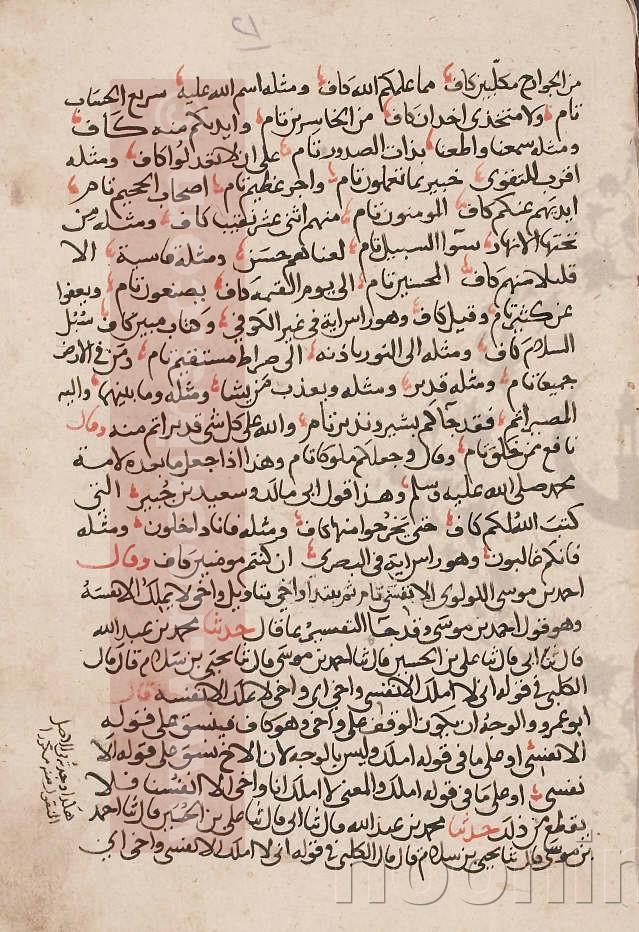 من الجوارح مكلبين كاف مما علمكم الله كاف ومثله اسم الله عليه سريع الحساب
تام ولا متخذي اخدان كاف من الخاسرين تام وايديكم منه كاف
ومثله سمعنا واطعنا بذات الصدور تام على ان لا تعدلوا كاف ومثله
اقرب للتقوى خبير بما تعملون تام واجر عظيم تام اصحاب الجحيم تام
ايديهم عنكم كاف المومنون تام منهم اثنى عشر نقيبا كاف ومثله من
تحتها الانهار سوآ السبيل تام لعناهم حسن ومثله قاسية الا
قليلا منهم كاف المحسنين تام الى يوم القيمه كاف يصنعون تام ويعفوا
عن كثير تام وقيل كاف وهو راس اية في غير الكوفي وكتاب مبين كاف سبل
السلام كاف ومثله الى النور باذنه الى صراط مستقيم تام ومن في الارض
جميعا تام ومثله قدير ومثله ويعذب من يشا ومثله وما بينهما واليه
المصير اتم فقد جاكم بشير ونذير تام والله على كل شى قدير اتم منه وقال
نافع ممن خلق تام وقال وجعلكم ملوكا تام وهذا اذا جعل ما بعده لامة
محمد صلى الله عليه وسلم وهذا قول ابى مالك وسعيد بن جبير التي
كتب الله لكم كاف حتى يخرجوا منها كاف ومثله فانا داخلون ومثله
فانكم غالبون وهو راس اية في البصرى ان كنتم مومنين كاف وقال
احمد بن موسى اللولوي الا نفسي تام ثم يبتدا واخي بتاويل واخي لا يملك الا نفسه
وهو قول احمد بن موسى وقد جآ التفسير بما قال حدثنا محمد بن عبد الله
قال ثنا ابى قال ثنا على بن الحسين قال ثنا احمد بن موسى قال ثنا يحيى بن سلام قال قال
الكلبي في قوله انى لا املك الا نفسي واخي اى واخي لا يملك الا نفسه قال
ابو عمرو والوجه ان يكون الوقف على واخي وهو كاف فينسق على قوله
الا نفسي او على ما في قوله املك وليس بالوجه لان الاخ نسق على قوله الا
نفسي او على ما في قوله املك والمعنى لا املك انا واخي الا انفسنا فلا
يقطع من ذلك حدثنا محمد بن عبد الله قال ثنا ابى قال ثنا على بن الحسين قال ثنا احمد
بن موسى قال ثنا يحيى بن سلام قال قال الكلبي في قوله انى لا املك الا نفسي واخي اى
هكذا وجدته في الاصل
noomin